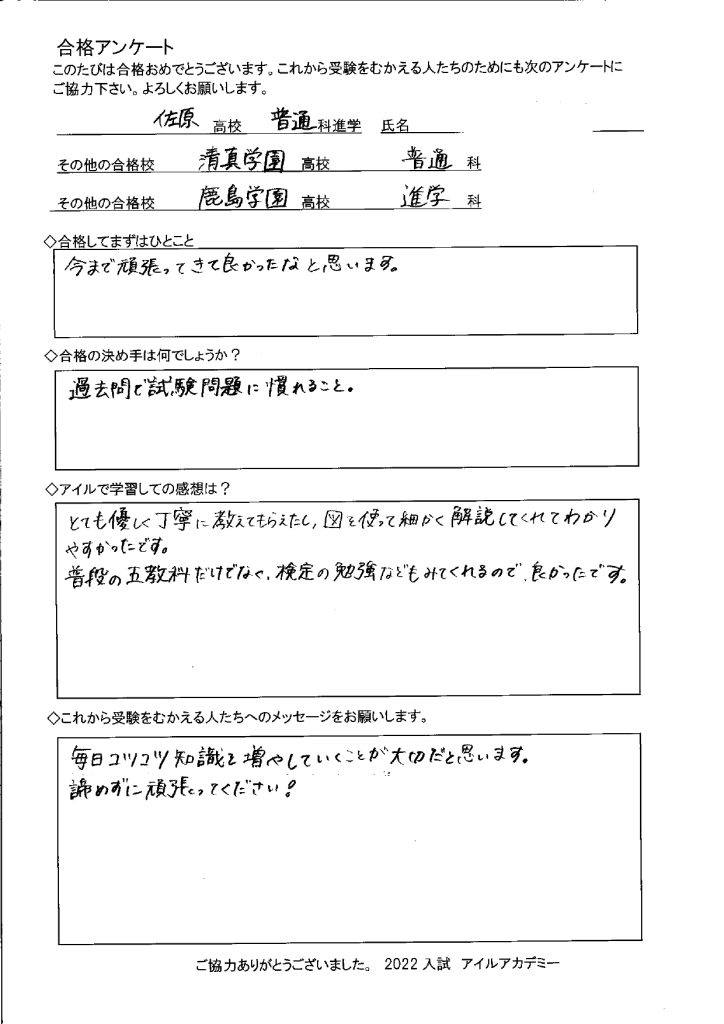 合格アンケート
このたびは合格おめでとうございます。これから受験をむかえる人たちのためにも次のアンケートに
ご協力下さい。よろしくお願いします。
佐原 高校 普通 科進学 氏名
その他の合格校 清真学園 高校 普通 科
その他の合格校 鹿島学園 高校 進学 科
◇合格してまずはひとこと
今まで頑張ってきて良かったなと思います。
◇合格の決め手は何でしょうか？
過去問で試験問題に慣れること。
◇アイルで学習しての感想は？
とても優しく丁寧に教えてもらえたし、図を使って細かく解説してくれてわかり
やすかったです。
普段の五教科だけでなく、検定の勉強などもみてくれるので、良かったです。
◇これから受験をむかえる人たちへのメッセージをお願いします。
毎日コツコツ知識を増やしていくことが大切だと思います。
諦めずに頑張ってください！
ご協力ありがとうございました。 2022 入試 アイルアカデミー